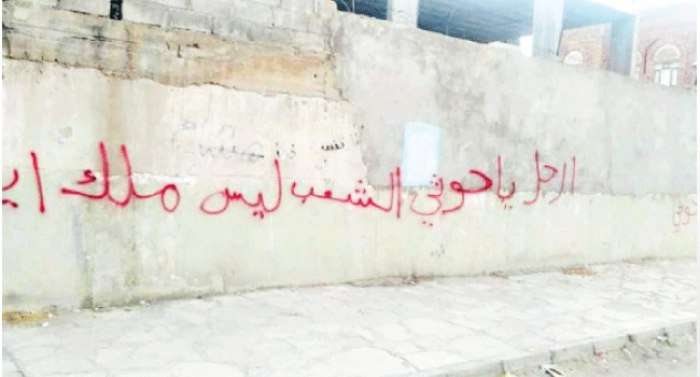 ارحل ياحوثي الشعب ليس ملك اي